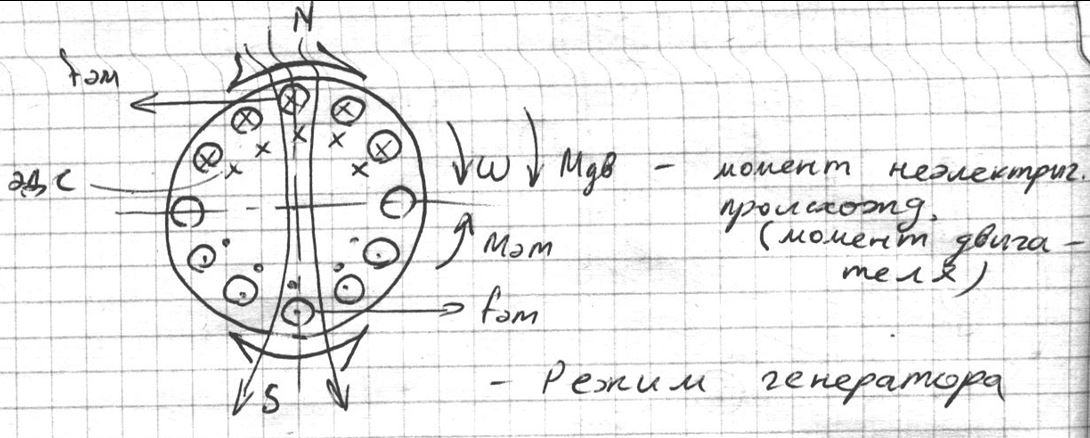 N
fэм
ω Mдв - момент неэлектрич.
эдс
происхожд.
Mэм
(момент двига-
теля)
fэм
S
- Режим генератора